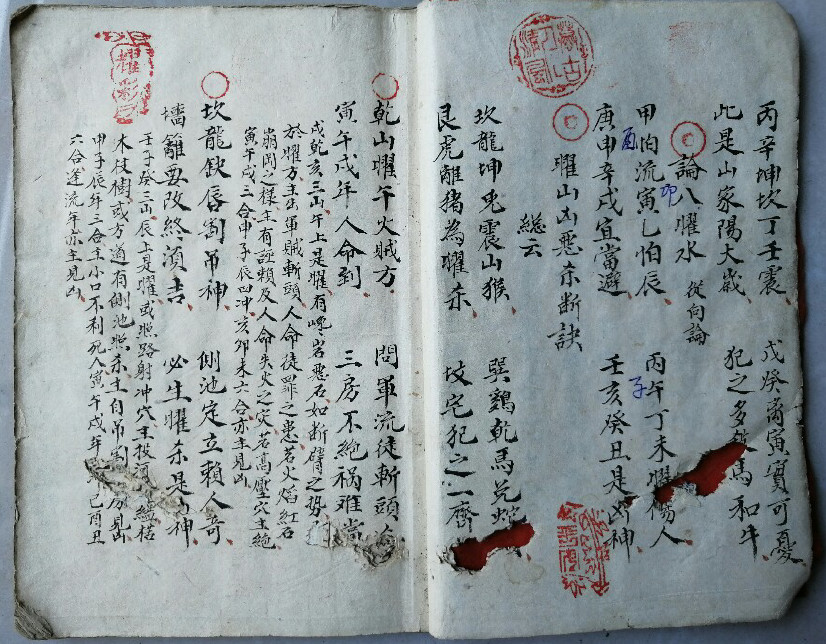 丙辛坤坎丁壬震 戊癸离寅實可憂
此是山家陽大歲 犯之多 馬和牛
論八曜水 從向論
甲怕流寅乙怕辰 丙午丁未曜傷人
卯
子
庚申辛戌宜當避 壬亥癸丑是凶神
酉
曜山凶惡杀断訣
總云
坎龍坤兎震山猴 巽鷄乾馬兑蛇
艮虎離猪為曜杀 坟宅犯之一齊
乾山曜午火賊方 問軍流徒斬頭
寅午戌年人命到 三房不絶禍难當
戌乾亥三山午上是曜有嶂岩惡石如断臂之勢
於曜方主出軍賊斬頭人命徒罪之患若火焰紅石
崩闕之様主有誣賴及人命失火之灾若高壓穴主絶
寅午戌三合申子辰四冲亥卯未六合亦主見凶
坎龍缺唇割吊神 側池定立賴人奇
墻籬要改終須吉 必生曜杀是 神
壬子癸三山辰上是曜或照路射冲穴主投河 縊枯
木枝樹或方道有側池照杀主自吊割 房見凶
申子辰年三合主小口不利死人寅午戌年 巳酉丑
六合逢流年亦主見凶
耀彩